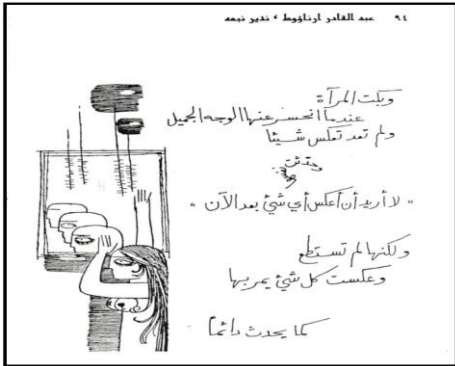 ٩٤ عبد القادر ارناؤوط ، نذير نبعه
وبكت المرآة
عندما انحسر عنها الوجه الجميل
ولم تعد تعكس شيئا
وحدثت
" لا أريد أن أعكس أي شيء بعد الآن "
ولكنها لم تستطع
وعكست كل شيء يمر بها
كما يحدث دائماً